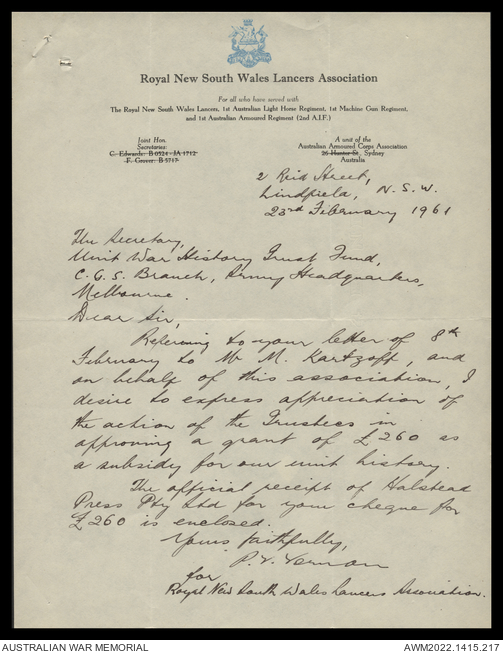 Royal New South Wales Lancers Association
For all who have served with
The Royal New South Wales Lancers, 1st Australian Light Horse Regiment, 1st Machine Gun Regiment,
and 1st Australian Armoured Regiment (2nd A.I.F.)
Joint Hon.
Secretaries:
C. Edwards: B 0524 - JA 1712
F. Grover: B 5717
A unit of the
Australian Armoured Corps Association
26 Hunter St, Sydney
Australia
2 Reid Street,
Lindfield, N.S.W.
23rd February 1961
The Secretary,
Unit War History Trust Fund,
C.G.S. Branch, Army Headquarters,
Melbourne.
Dear Sir,
Referring to your letter of 8th
February to Mr M. Kartzoff, and
on behalf of this association, I
desire to express appreciation of
the action of the Trustees in
approving a grant of £260 as
a subsidy for our unit history.
The official receipt of Halstead
Press Pty Ltd for your cheque for
£260 is enclosed.
Yours faithfully,
P.V. Vernon
for
Royal New South Wales Lancers Association.
AUSTRALIAN WAR MEMORIAL
AWM2022.1415.217